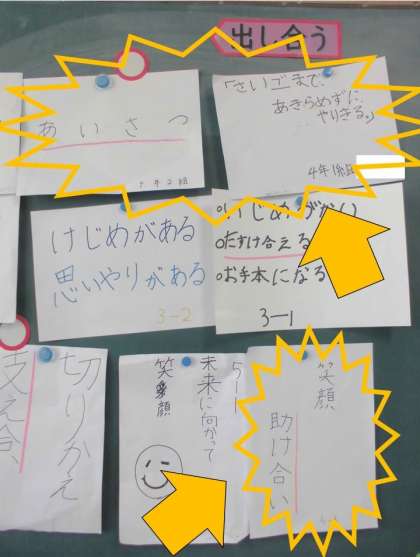 出し合う
あいさつ
「さいごまで、
あきらめずに、
やりきる」
4年1組
けじめがある
思いやりがある
3-2
たすけ合える
お手本になる
3-1
切りかえ
支え合
5-1
未来に向かって
笑顔
笑顔
助け合い